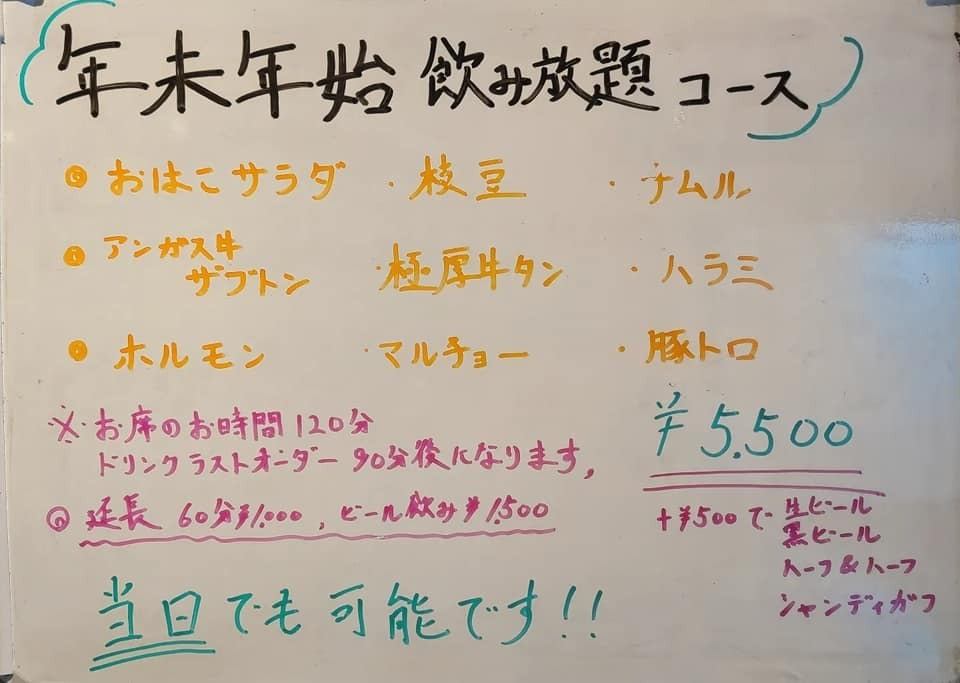 年末年始 飲み放題 コース
おはこサラダ ・枝豆 ・ナムル
アンガス牛
ザブトン ・極厚牛タン ・ハラミ
ホルモン ・マルチョー ・豚トロ
※お席のお時間120分
ドリンクラストオーダー90分後になります。
延長 60分¥1,000、ビール飲み¥1,500
¥5,500
+¥500で 生ビール
黒ビール
ハーフ&ハーフ
シャンディガフ
当日でも可能です!!